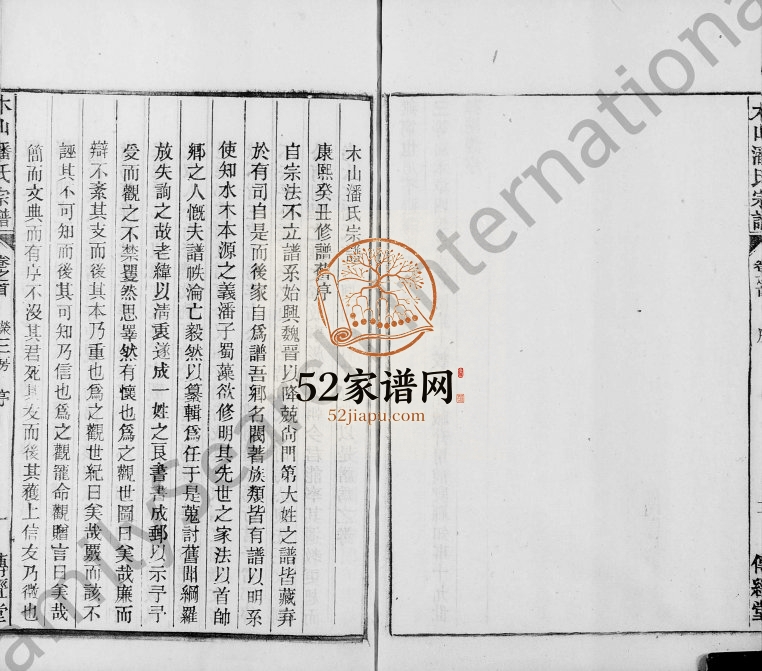 木山潘氏宗譜
康熙癸丑修譜舊序
自宗法不立譜系始興魏晉以降兢尙門第大姓之譜皆藏弆
於有司自是而後家自爲譜吾鄉名閥著族類皆有譜以明系
使知水木本源之義潘子蜀藻欲修明其先世之家法以首帥
鄉之人慨夫譜帙淪亡毅然以纂輯爲任于是蒐討舊聞綱羅
放失詢之故老緯以淸裏遂成一姓之良書書成郵以示予予
受而觀之不禁瞿然思睪然有懷也爲之觀世圖曰矣哉廉而
辯不紊其支而後其本乃重也爲之觀世紀曰矣哉覈而該不
誣其不可知而後其可知乃信也爲之觀寵命觀贈言曰矣哉
簡而文典而有序不沒其君死其友而後其獲上信友乃徵也
木山潘氏宗譜
卷之首
序
一
傳經堂
木山潘氏宗譜
傳經堂
52家谱网
52jiapu.com
FamilySearch International